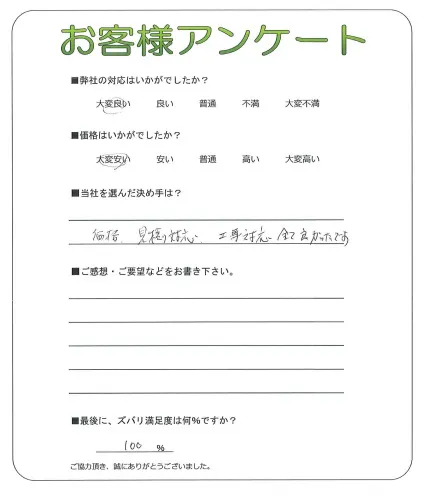 お客様アンケート
■弊社の対応はいかがでしたか？
大変良い 良い 普通 不満 大変不満
■価格はいかがでしたか？
大変安い 安い 普通 高い 大変高い
■当社を選んだ決め手は？
価格、見積り対応、工事対応 全て良かったです
■ご感想・ご要望などをお書き下さい。
■最後に、ズバリ満足度は何%ですか？
100 %
ご協力頂き、誠にありがとうございました。